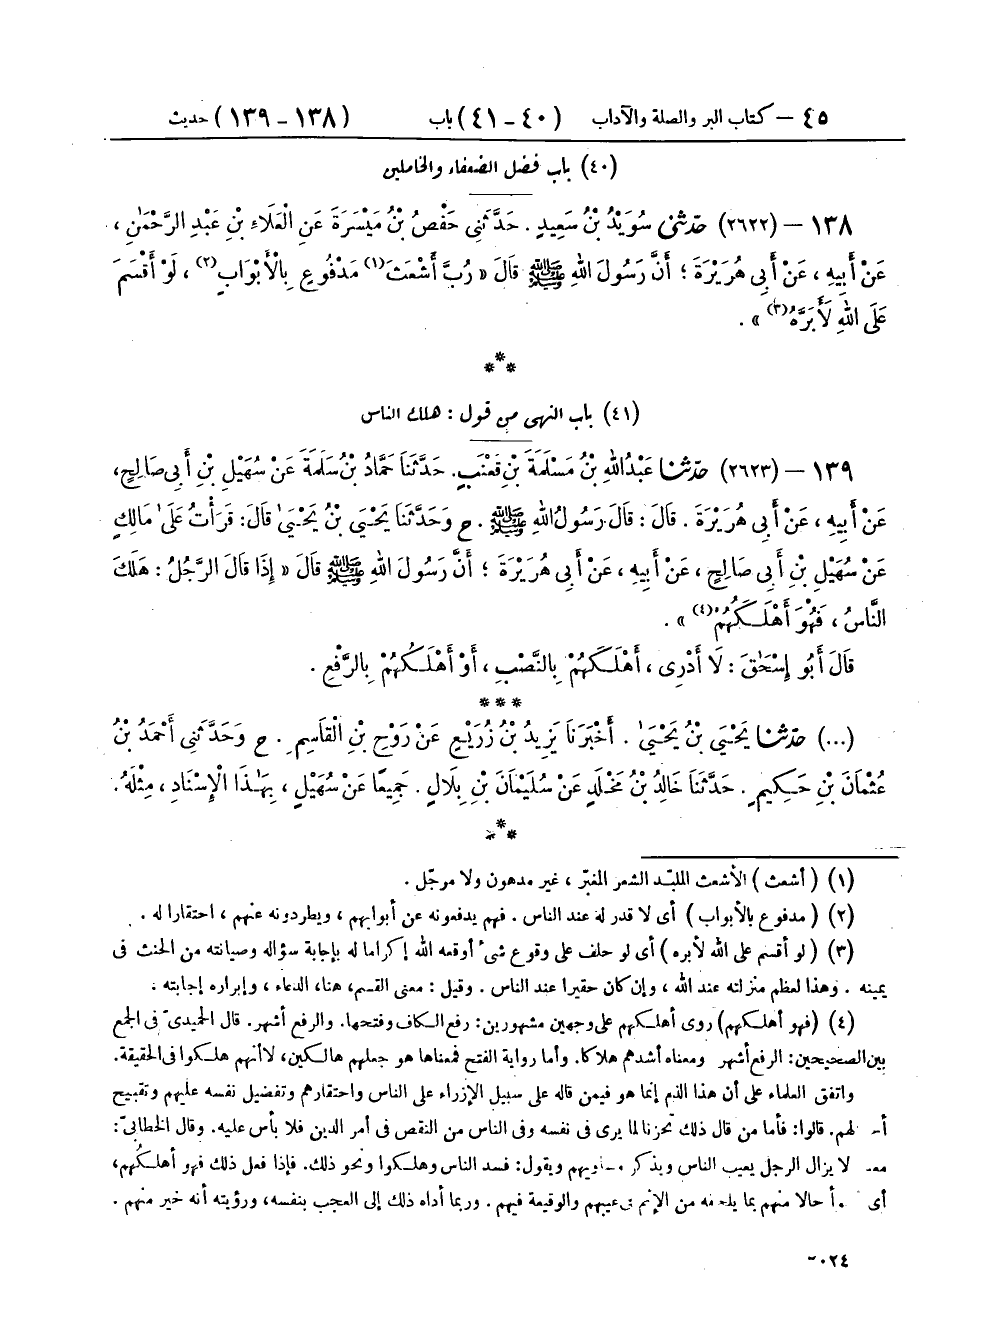 ٤٥ – كتاب البر والصلة والآداب (٤٠ - ٤١) باب (١٣٨ - ١٣٩) حديث
(٤٠) باب فضل الضعفاء والخاملين
١٣٨ – (٢٦٢٢) حَدَّثَنِي سُوَيْدُ بْنُ سَعِيدٍ . حَدَّثَنِي حَفْصُ بْنُ مَيْسَرَةَ عَنِ الْعَلَاءِ بْنِ عَبْدِ الرَّحْمَٰنِ ،
عَنْ أَبِيهِ ، عَنْ أَبِي هُرَيْرَةَ ؛ أَنَّ رَسُولَ اللهِ ﷺ قَالَ « رُبَّ أَشْعَثَ(١) مَدْفُوعٍ بِالْأَبْوَابِ(٢) ، لَوْ أَقْسَمَ
عَلَى اللهِ لَأَبَرَّهُ(٣) » .
***
(٤١) باب النهى من قول : هلك الناس
١٣٩ – (٢٦٢٣) حَدَّثَنَا عَبْدُ اللهِ بْنُ مَسْلَمَةَ بْنِ قَعْنَبٍ. حَدَّثَنَا حَمَّادُ بْنُ سَلَمَةَ عَنْ سُهَيْلِ بْنِ أَبِي صَالِحٍ،
عَنْ أَبِيهِ ، عَنْ أَبِي هُرَيْرَةَ . قَالَ : قَالَ رَسُولُ اللهِ ﷺ . ح وَحَدَّثَنَا يَحْيَى بْنُ يَحْيَىٰ قَالَ: قَرَأْتُ عَلَىٰ مَالِكٍ
عَنْ سُهَيْلِ بْنِ أَبِي صَالِحٍ ، عَنْ أَبِيهِ ، عَنْ أَبِي هُرَيْرَةَ ؛ أَنَّ رَسُولَ اللهِ ﷺ قَالَ « إِذَا قَالَ الرَّجُلُ : هَلَكَ
النَّاسُ ، فَهُوَ أَهْلَكُهُمْ(٤) » .
قَالَ أَبُو إِسْحَٰقَ : لَا أَدْرِى ، أَهْلَكَهُمْ بِالنَّصْبِ ، أَوْ أَهْلَكُهُمْ بِالرَّفْعِ .
***
(...) حَدَّثَنَا يَحْيَى بْنُ يَحْيَىٰ . أَخْبَرَنَا يَزِيدُ بْنُ زُرَيْعٍ عَنْ رَوْحِ بْنِ الْقَاسِمِ . ح وَحَدَّثَنِي أَحْمَدُ بْنُ
عُثْمَانَ بْنِ حَكِيمٍ . حَدَّثَنَا خَالِدُ بْنُ مَخْلَدٍ عَنْ سُلَيْمَانَ بْنِ بِلَالٍ . جَمِيعًا عَنْ سُهَيْلٍ ، بِهَٰذَا الْإِسْنَادِ ، مِثْلَهُ.
***
(١) ( أشعث ) الأشعث الملبّد الشعر المغبّر ، غير مدهون ولا مرجّل .
(٢) ( مدفوع بالأبواب ) أى لا قدر له عند الناس . فهم يدفعونه عن أبوابهم ، ويطردونه عنهم ، احتقارا له .
(٣) ( لو أقسم على الله لأبره ) أى لو حلف على وقوع شىء أوقعه الله إكراما له بإجابة سؤاله وصيانته من الحنث فى
يمينه . وهذا لعظم منزلته عند الله ، وإن كان حقيرا عند الناس . وقيل : معنى القسم، هنا، الدعاء ، وإبراره إجابته .
(٤) (فهو أهلكهم) روى أهلكهم على وجهين مشهورين: رفع الكاف وفتحها. والرفع أشهر. قال الحميدىّ فى الجمع
بين الصحيحين: الرفع أشهر ومعناه أشدهم هلاكا. وأما رواية الفتح فمعناها هو جعلهم هالكين، لا أنهم هلكوا فى الحقيقة.
واتفق العلماء على أن هذا الذم إنما هو فيمن قاله على سبيل الإزراء على الناس واحتقارهم وتفضيل نفسه عليهم وتقبيح
لهم. قالوا: فأما من قال ذلك تحزنا لما يرى فى نفسه وفى الناس من النقص فى أمر الدين فلا بأس عليه. وقال الخطابىّ:
لا يزال الرجل يعيب الناس ويذكر ويقول: فسد الناس وهلكوا ونحو ذلك. فإذا فعل ذلك فهو أهلكهم،
أى حالا منهم بما من الإثم فى عيبهم والوقيعة فيهم . وربما أداه ذلك إلى العجب بنفسه، ورؤيته أنه خير منهم .
٢٠٢٤